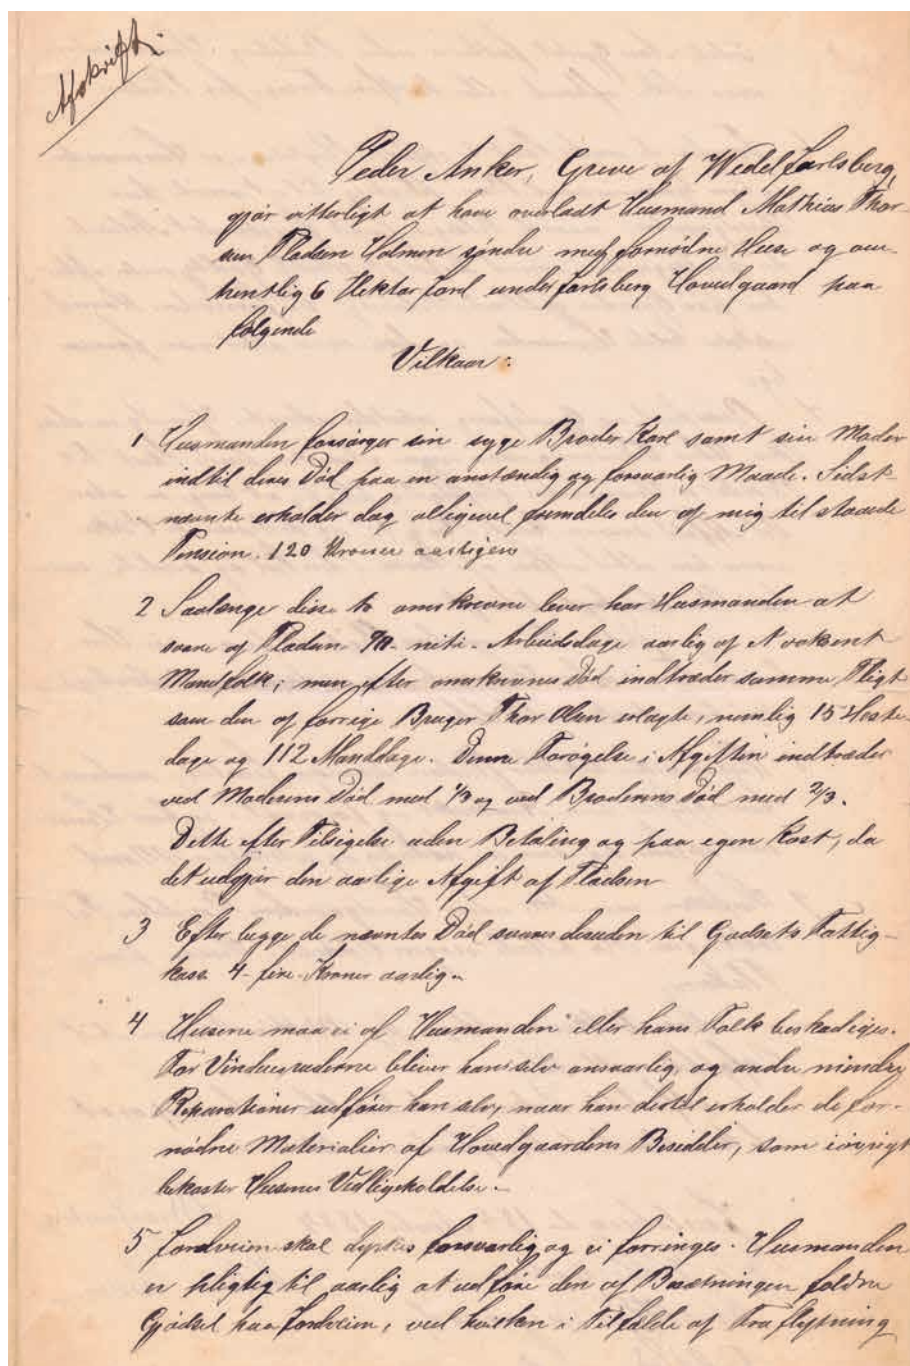 Afskrift.
Peder Anker, Greve af Wedel Jarlsberg,
gjør vitterligt at have overladt Husmand Mathias Thor-
sen Pladsen Holmen søndre med fornødne Huse og om-
trentlig 6 Hektar Jord under Jarlsberg Hovedgaard paa
følgende
Vilkaar:
1 Husmanden forsørger sin syge Broder Karl samt sin Moder
indtil deres Død paa en anstændig og forsvarlig Maade. Sidst-
nævnte erholder dog alligevel fremdeles den af mig til staaede
Pension. 120 Kroner aarligen
2 Saalænge disse to omskrevne lever har Husmanden at
svare af Pladsen 90- niti- Arbeidsdage aarlig af et voksent
Mandfolk; men efter omskrevnes Død indtræder samme Pligt
som den af forrige Bruger Thor Olsen erlagte, nemlig 15 Heste-
dage og 112 Manddage. Denne Forøgelse i Afgiften indtræder
ved Moderens Død med 1/3 og ved Broderens Død med 2/3.
Dette efter Tilsigelse uden Betaling og paa egen Kost, da
det udgjør den aarlige Afgift af Pladsen
3 Efter begge de nævntes Død svares desuden til Godsets Fattig-
kasse 4- fire- Kroner aarlig.
4 Husene maa ei af Husmanden eller hans Folk beskadiges.
For Vinduesruderne bliver han selv ansvarlig, og andre mindre
Reparationer udfører han selv, naar han dertil erholder de for-
nødne Materialier af Hovedgaardens Besidder, som iøvrigt
bekoster Husenes Vedligeholdelse.
5 Jordveien skal dyrkes forsvarlig og ei forringes. Husmanden
er pligtig til aarlig at udføre den af Besætningen faldne
Gjødsel paa Jordveien, ved hvilken i Tilfælde af Fraflytning